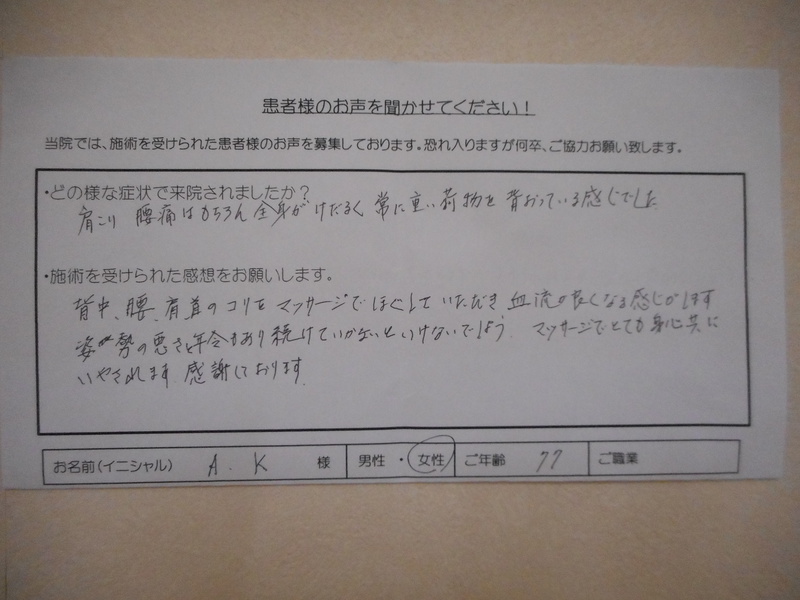 患者様のお声を聞かせてください！
当院では、施術を受けられた患者様のお声を募集しております。恐れ入りますが何卒、ご協力お願い致します。
・どの様な症状で来院されましたか？
肩こり 腰痛はもちろん 全身がけだるく 常に重い荷物を 背おっている感じでした
・施術を受けられた感想をお願いします。
背中、腰、肩首のコリを マッサージで ほぐして いただき 血流が良くなる感じがします
姿勢の悪さと年令もあり 続けていかないといけないでしょう。マッサージでとても身心共に
いやされます 感謝しております。
お名前（イニシャル） A．K 様 男性 ・ 女性 ご年齢 77 ご職業